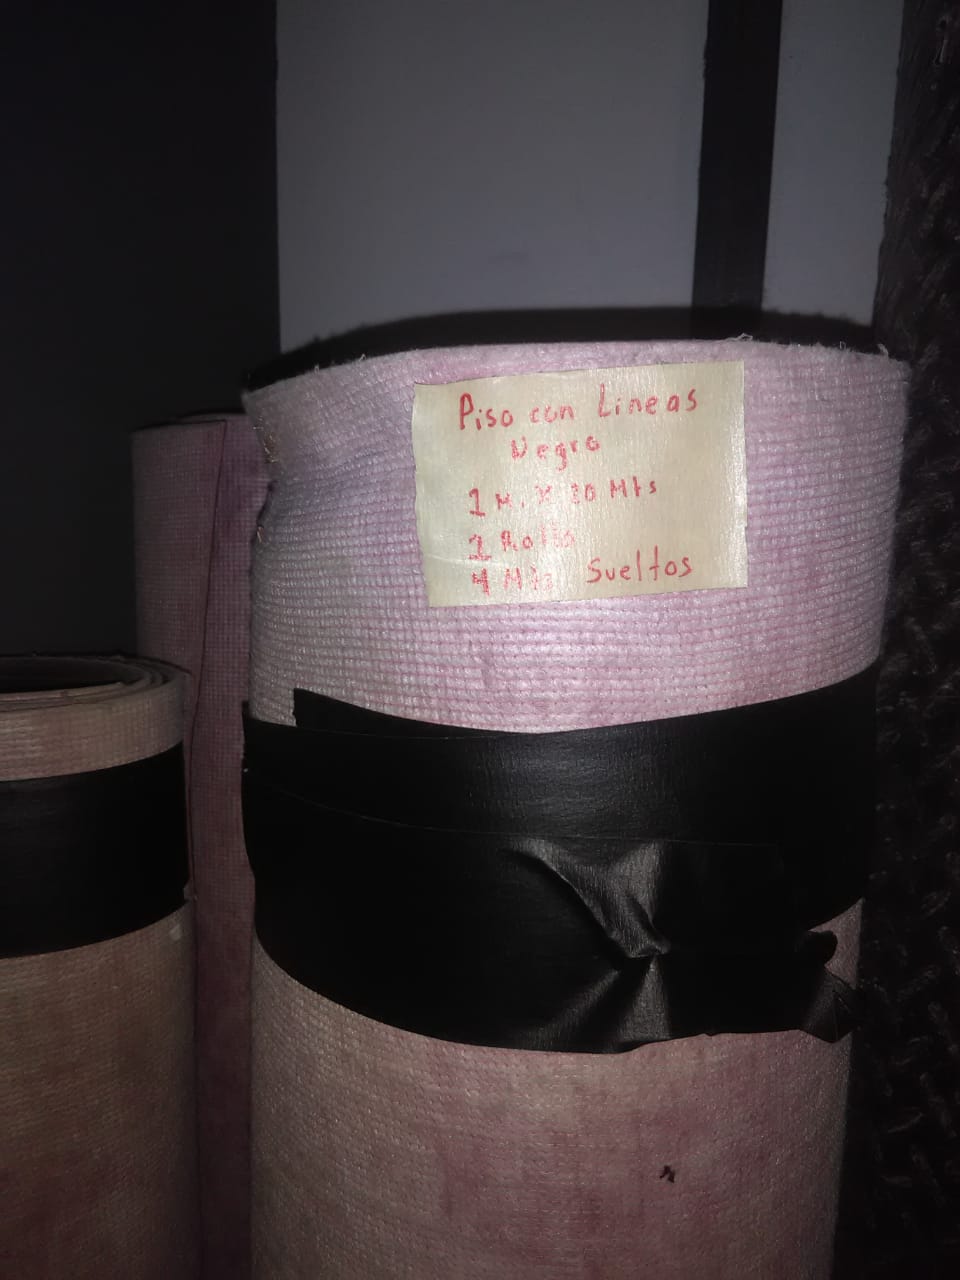 Piso con Lineas
Negro
1 M. X 20 Mts
1 Rollo
4 Mts Sueltos